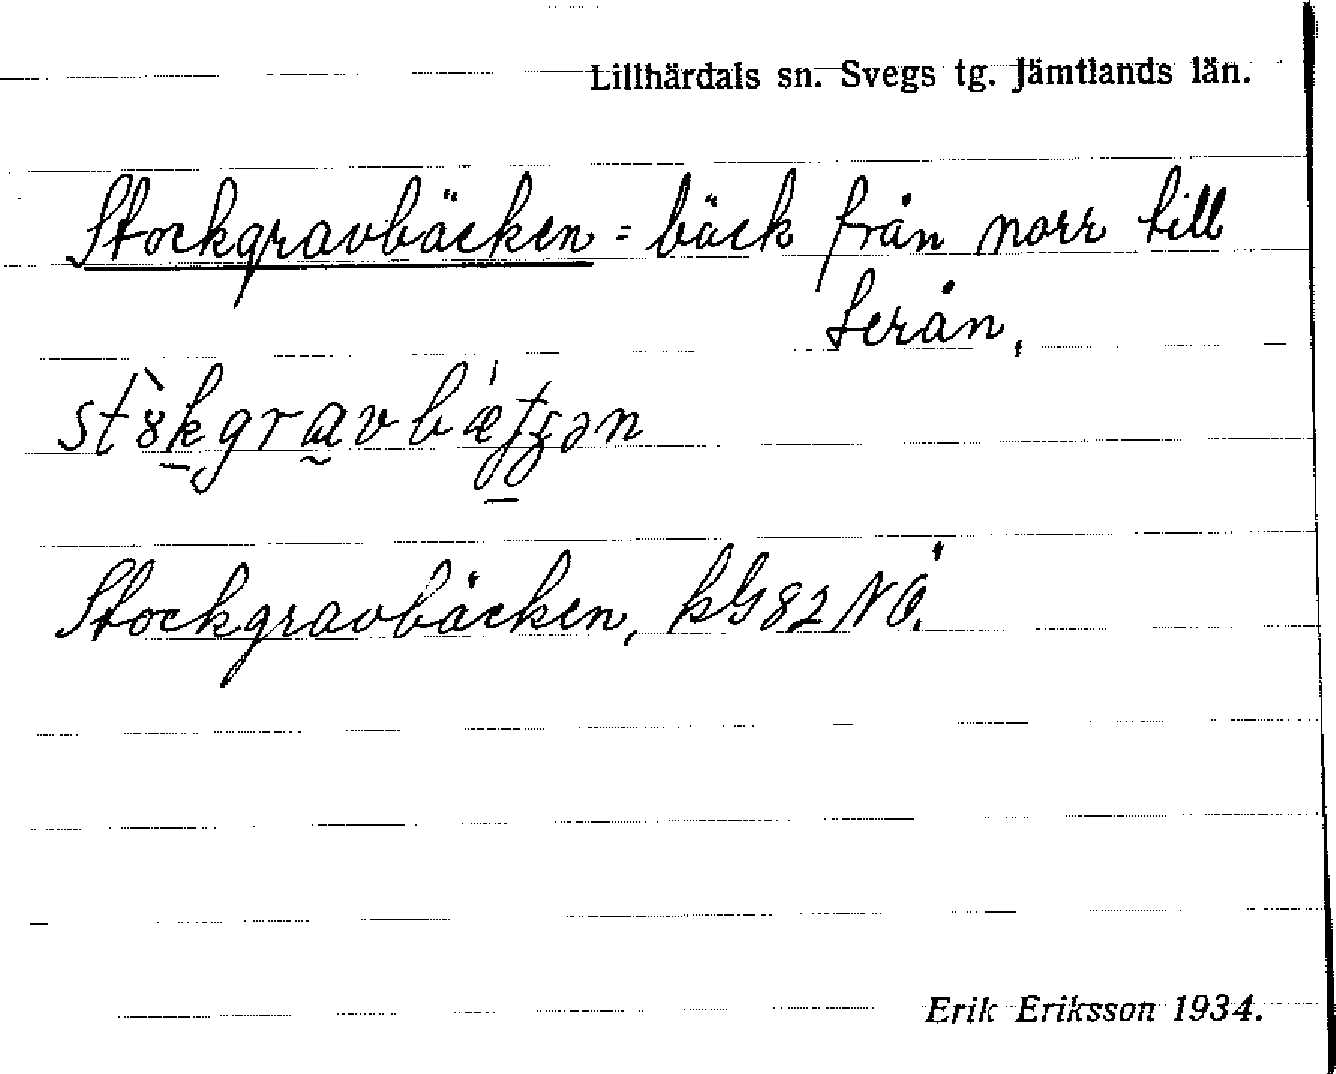 Lillhärdals sn. Svegs tg. Jämtlands län.
Stockgravbäcken = bäck från norr till
Terån,
Stockgravbäcken, kG82NÖ.
Erik Eriksson 1934.